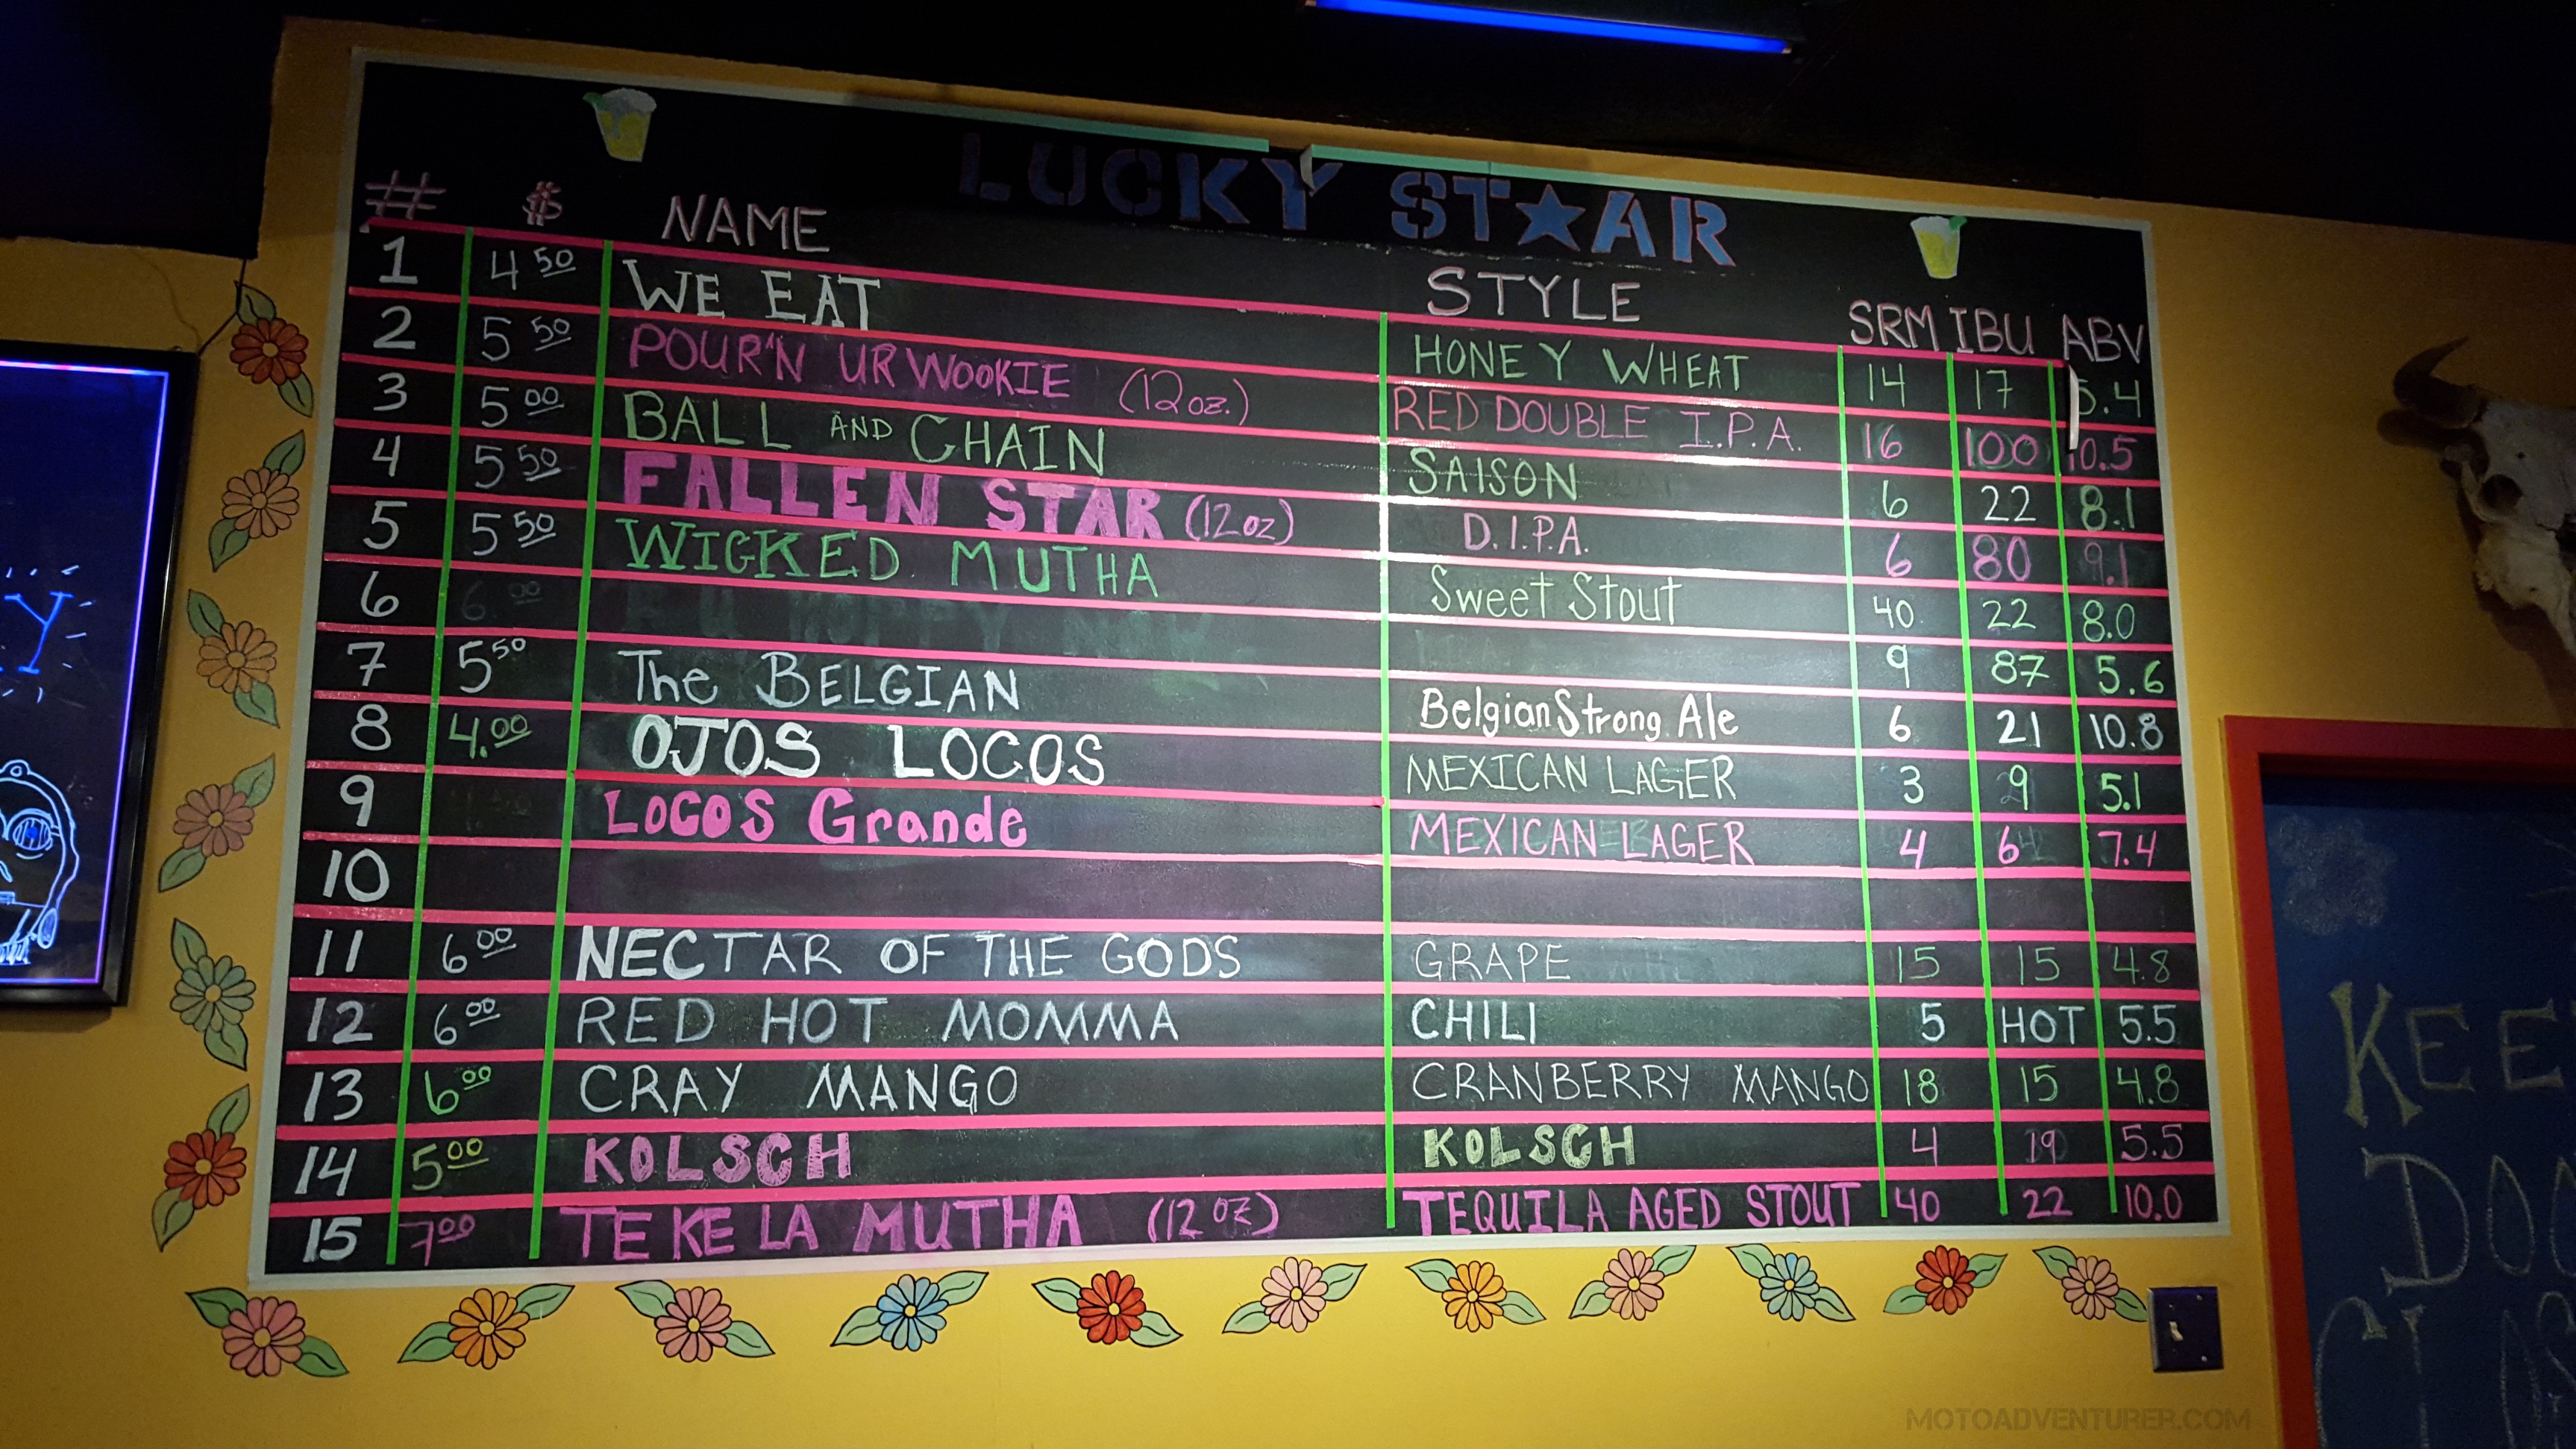 LUCKY ST★AR
# $ NAME STYLE SRM IBU ABV
1 4 50 WE EAT HONEY WHEAT 14 17 5.4
2 5 50 POUR'N UR WOOKIE (12oz.) RED DOUBLE I.P.A. 16 100 10.5
3 5 00 BALL AND CHAIN SAISON 6 22 8.1
4 5 50 FALLEN STAR (12oz) D.I.P.A. 6 80 9.1
5 5 50 WICKED MUTHA Sweet Stout 40 22 8.0
6 6 00 9 87 5.6
7 5 50 The BELGIAN Belgian Strong Ale 6 21 10.8
8 4.00 OJOS LOCOS MEXICAN LAGER 3 9 5.1
9 LOCOS Grande MEXICAN LAGER 4 6 7.4
10
11 6 00 NECTAR OF THE GODS GRAPE 15 15 4.8
12 6 00 RED HOT MOMMA CHILI 5 HOT 5.5
13 6 00 CRAY MANGO CRANBERRY MANGO 18 15 4.8
14 5 00 KOLSCH KOLSCH 4 19 5.5
15 7 00 TEKE LA MUTHA (12 oz) TEQUILA AGED STOUT 40 22 10.0
Y
KEE
DOO
MOTOADVENTURER.COM